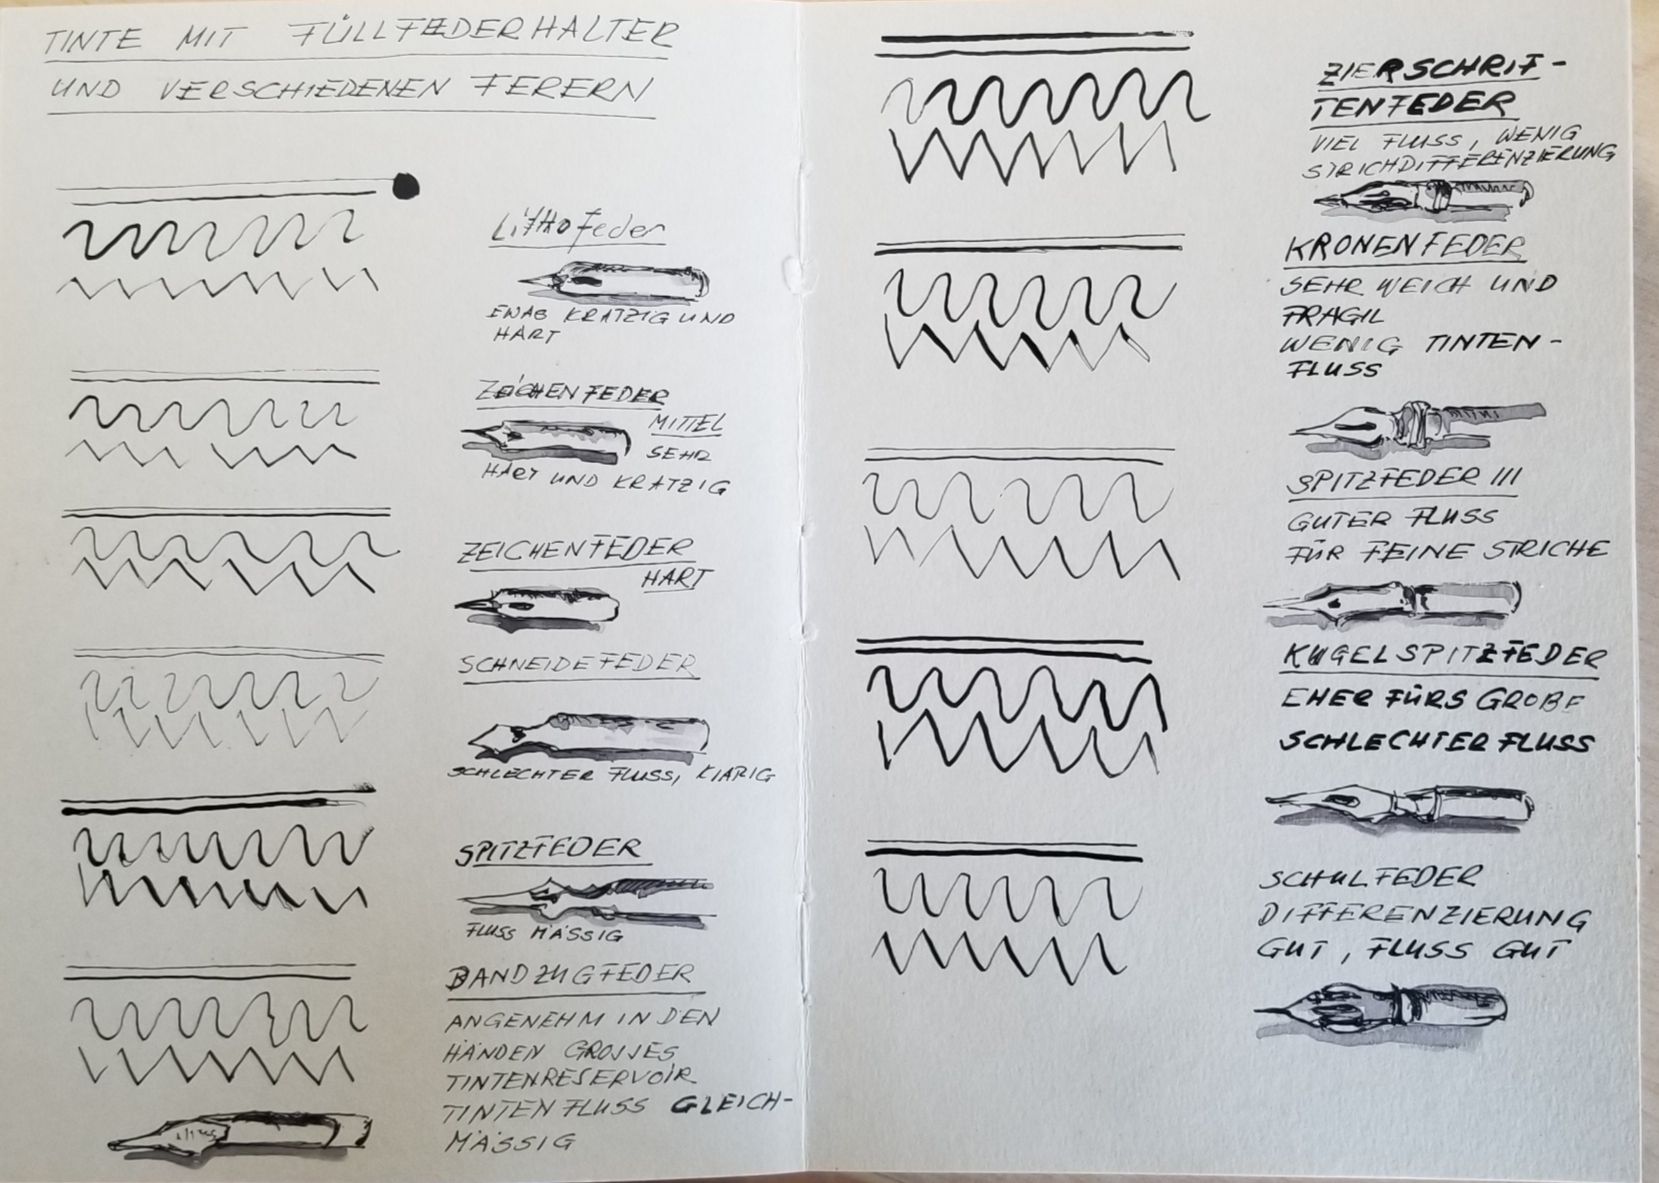 TINTE MIT FÜLLFEDERHALTER
UND VERSCHIEDENEN FERERN
Lithofeder
ETWAS KRATZIG UND
HART
ZEICHENFEDER
MITTEL
SEHR
HART UND KRATZIG
ZEICHENFEDER
HART
SCHNEIDEFEDER
SCHLECHTER FLUSS,
SPITZFEDER
FLUSS MÄSSIG
BANDZUGFEDER
ANGENEHM IN DEN
HÄNDEN GROSSES
TINTENRESERVOIR
TINTENFLUSS GLEICH-
MÄSSIG
ZIERSCHRIF-
TENFEDER
VIEL FLUSS, WENIG
STRICHDIFFERENZIERUNG
KRONENFEDER
SEHR WEICH UND
FRAGIL
WENIG TINTEN-
FLUSS
SPITZFEDER III
GUTER FLUSS
FÜR FEINE STRICHE
KUGELSPITZFEDER
EHER FÜRS GROBE
SCHLECHTER FLUSS
SCHULFEDER
DIFFERENZIERUNG
GUT, FLUSS GUT